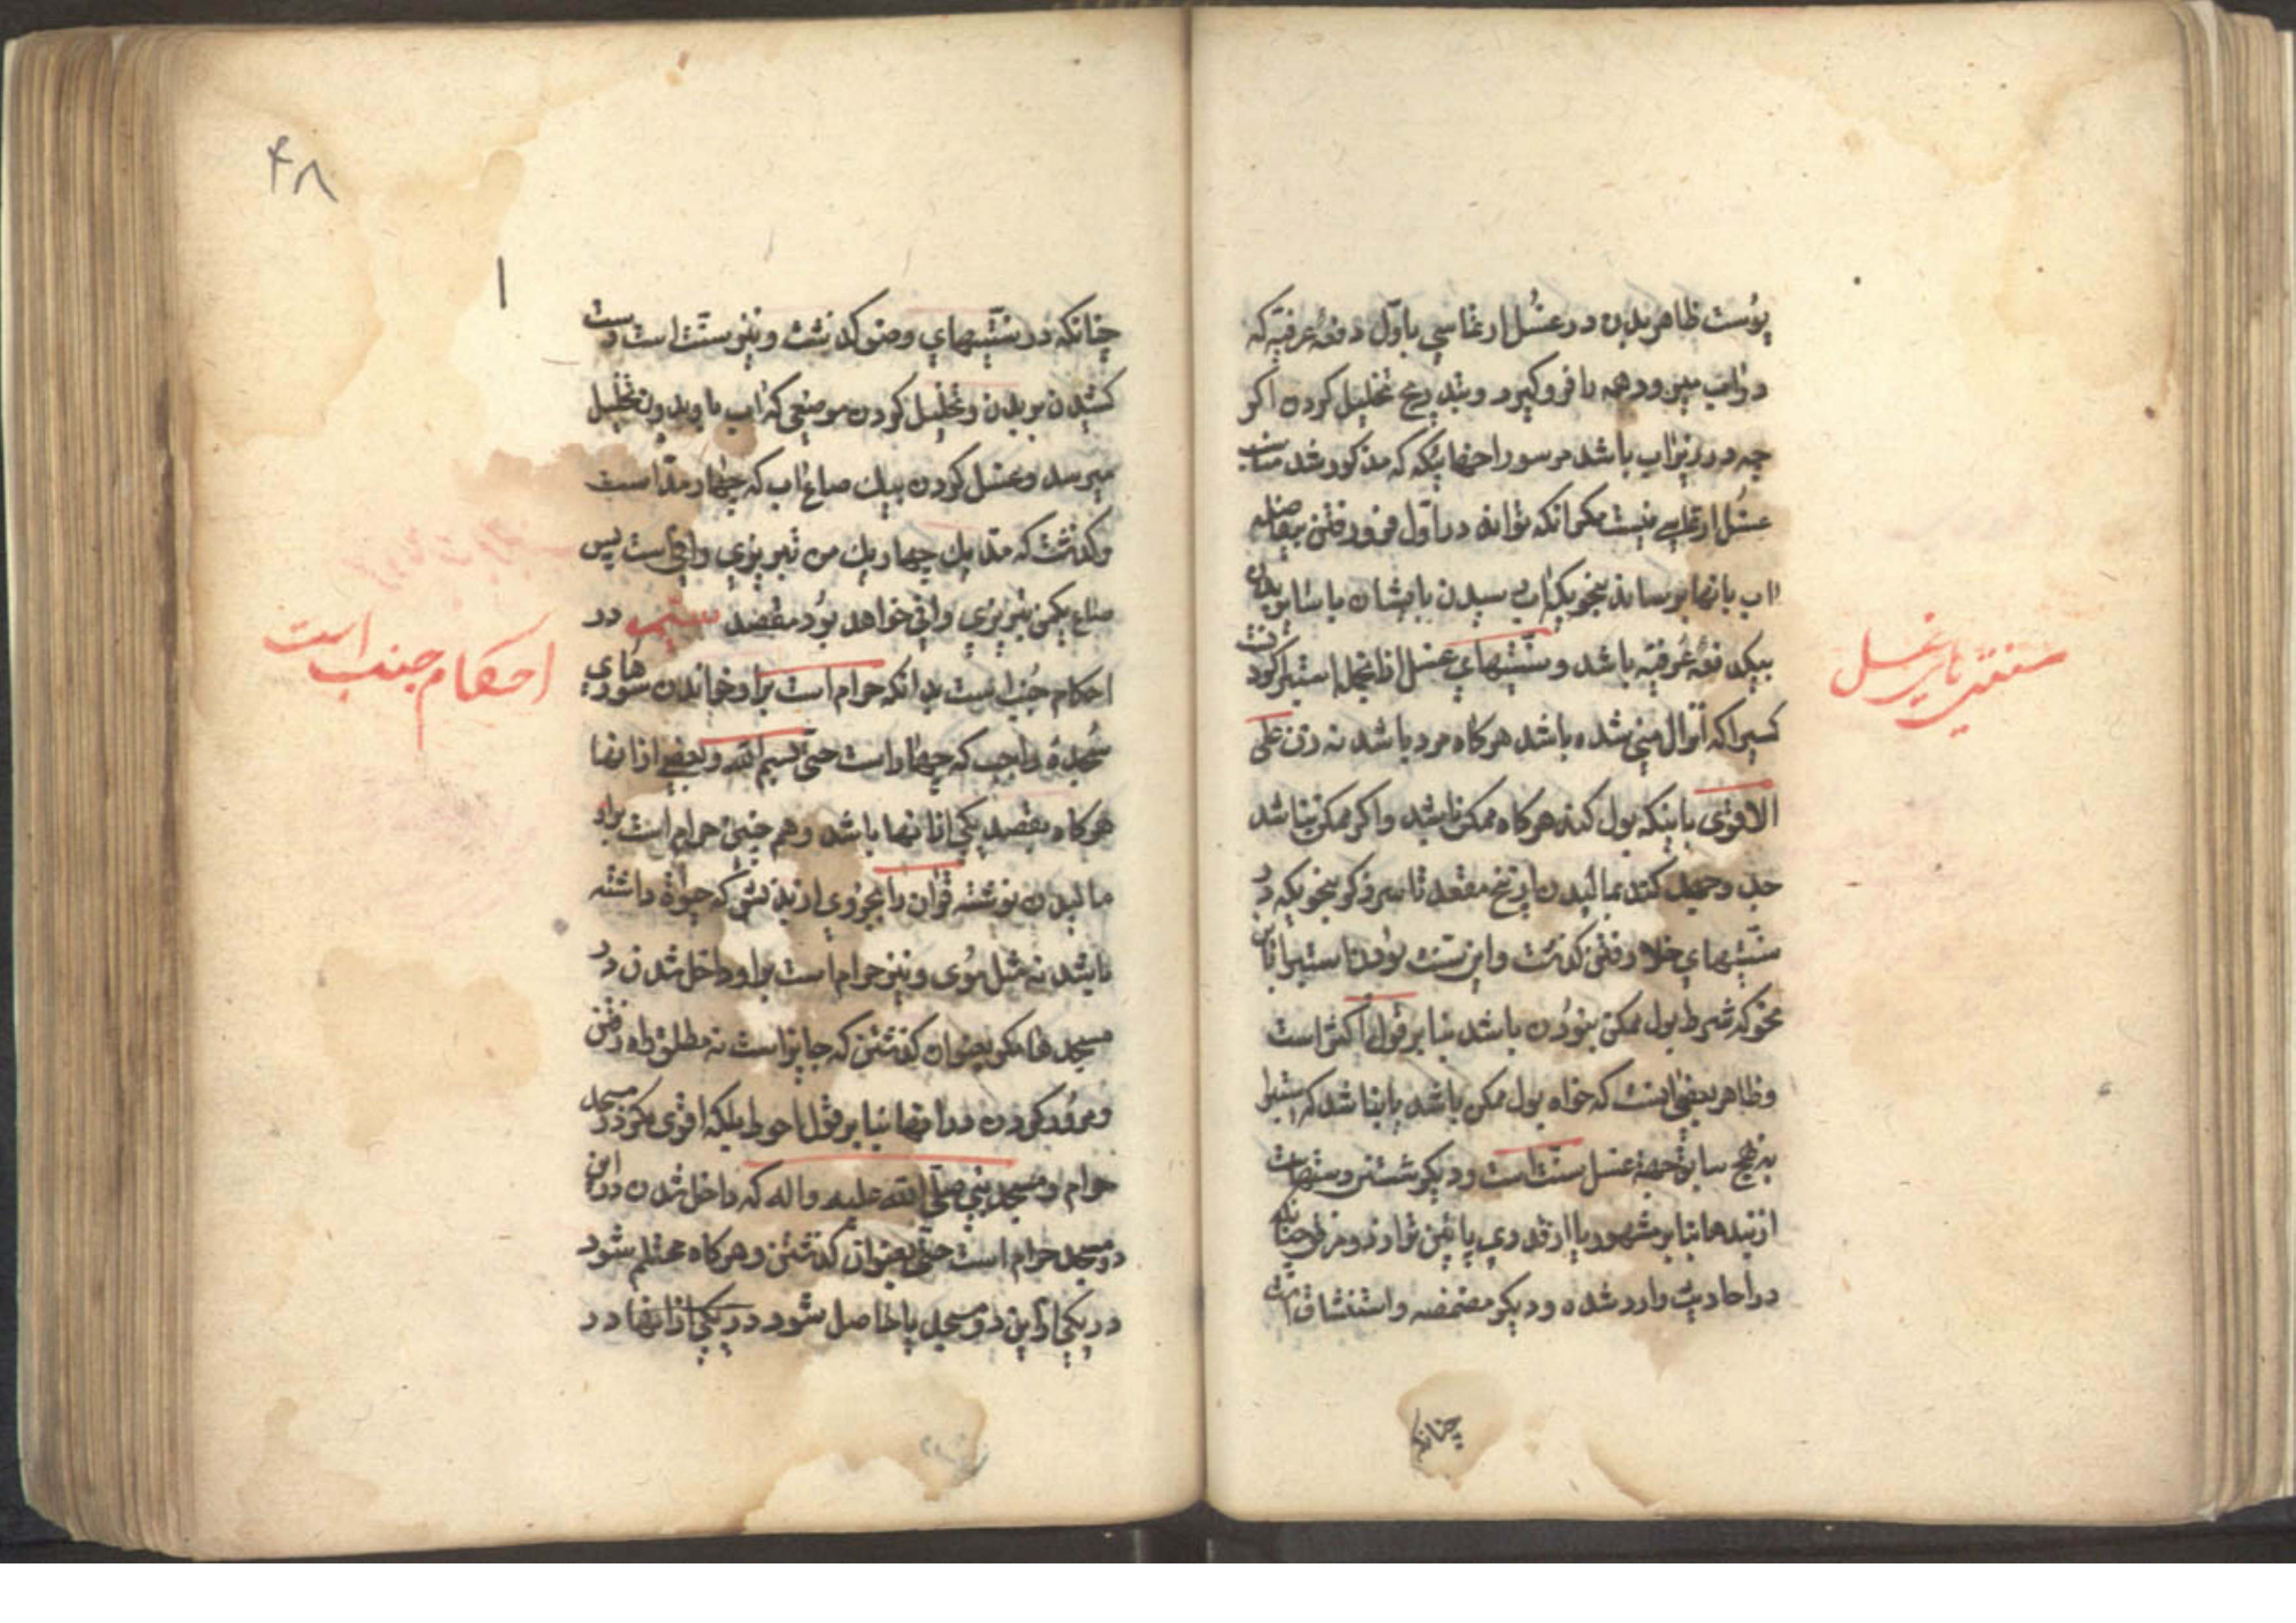 پوست ظاهر بدن و در غسل ارتماسی باول دفعهٔ عرفیه که
در آب میرود همه را فرو گیرد و بتدریج تخلیل کردن اگر
چه در زیر اب باشد مر سوراخهائیکه که مذکور شد مناسب
غسل ارتماسی نیست مگر انکه تواند در اول فرو رفتن بیفاصله
اب بانها برساند بنحویکه اب رسیدن بایشان با سایر بدن
بیکدفعهٔ عرفیه باشد و سنتیهای غسل از انجمله استبرا کردنست
کسیرا که انزال منی شده باشد هرگاه مرد باشد نه زن علی
الاقوی باینکه بول کند هرگاه ممکن باشد و اگر ممکن نباشد
جد و جهد کند بمالیدن از بیخ مقعد تا سر ذکر بنحویکه در
سنتیهای خلا رفتن گذشت و این سنت بودن استبرا باین
نحو که شرط بول ممکن نبودن باشد بنا بر قول اکثر است
و ظاهر بعضی اینست که خواه بول ممکن باشد یا نباشد که استبرا
به نهج سابق جهة غسل سنت است و دیگر شستن دستهاست
از بندها بنا بر مشهور یا از قدری پائین تر از دو مرفق چنانکه
در احادیث وارد شده و دیگر مضمضه و استنشاق است
چنانکه
سنتی های غسل
۴۸
۱
چنانکه در سنتیهای وضو گذشت و نیز سنت است دست
کشیدن بر بدن و تخلیل کردن موضعی که اب باو بدون تخلیل
میرسد و غسل کردن بیک صاع اب که چهار مد است
و گذشت که مد یک چهاریک من تبریزی وافی است پس
صاع یکمن تبریزی وافی خواهد بود مقصد ششم در
احکام جنب است بدانکه حرام است بر او خواندن سورهای
سجدهٔ واجب که چهار است حتی بسم الله و بعضی از انها
هرگاه بقصد یکی از انها باشد و هم چنین حرام است بر او
مالیدن نوشته قران را بجزوی از بدنش که حیوة داشته
باشد نه مثل موی و نیز حرام است بر او داخل شدن در
مسجدها مگر بعنوان گذشتن که جایز است نه مطلق راه رفتن
و مرور کردن در انها بنا بر قول احوط بلکه اقوی مگر در مسجد
حرام و مسجد نبی صلی الله علیه و اله که داخل شدن در این
دو مسجد حرام است حتی بعنوان گذشتن و هرگاه محتلم شود
در یکی از این دو مسجد یا حاصل شود در یکی از انها در
احکام جنب است